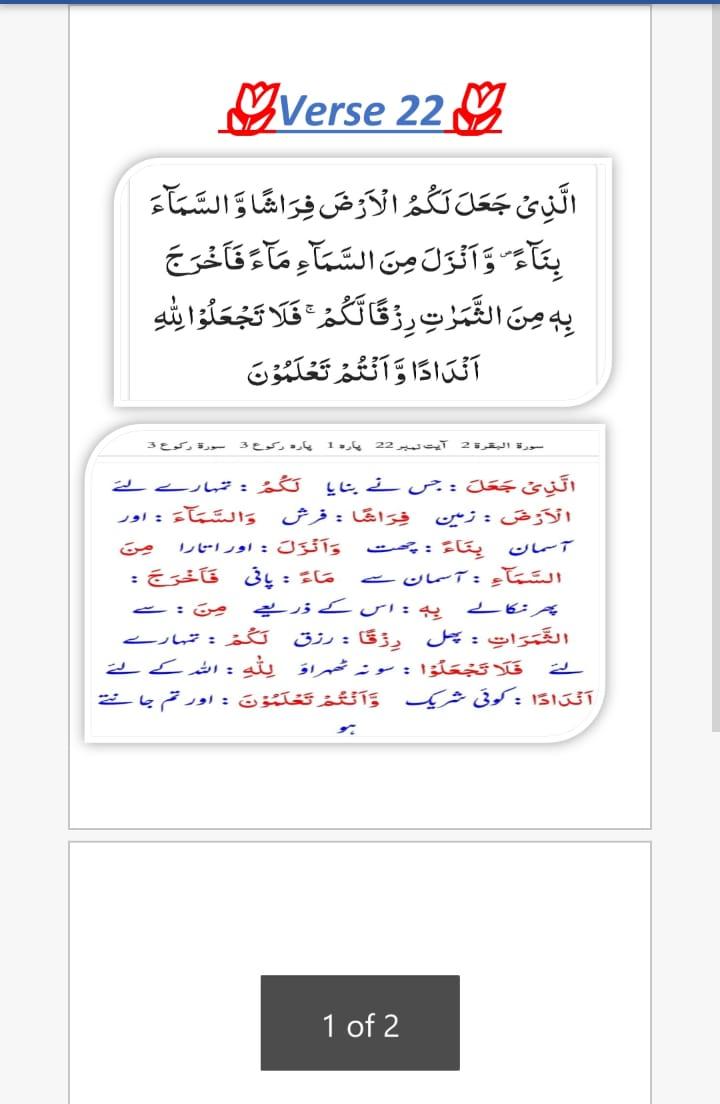 Verse 22
الَّذِىْ جَعَلَ لَكُمُ الْاَرْضَ فِرَاشًا وَّالسَّمَآءَ
بِنَآءً ۖ وَّاَنْزَلَ مِنَ السَّمَآءِ مَآءً فَاَخْرَجَ
بِهٖ مِنَ الثَّمَرٰتِ رِزْقًا لَّكُمْ ۚ فَلَا تَجْعَلُوْا لِلّٰهِ
اَنْدَادًا وَّاَنْتُمْ تَعْلَمُوْنَ
سورۃ البقرۃ 2 آیت نمبر 22 پارہ 1 پارہ رکوع 3 سورۃ رکوع 3
الَّذِىْ جَعَلَ : جس نے بنایا لَكُمُ : تمہارے لئے
الْاَرْضَ : زمین فِرَاشًا : فرش وَالسَّمَآءَ : اور
آسمان بِنَآءً : چھت وَاَنْزَلَ : اور اتارا مِنَ
السَّمَآءِ : آسمان سے مَآءً : پانی فَاَخْرَجَ :
پھر نکالے بِهٖ : اس کے ذریعے مِنَ : سے
الثَّمَرَاتِ : پھل رِزْقًا : رزق لَكُمْ : تمہارے
لئے فَلَا تَجْعَلُوْا : سو نہ ٹھہراؤ لِلّٰهِ : اللہ کے لئے
اَنْدَادًا : کوئی شریک وَّاَنْتُمْ تَعْلَمُوْنَ : اور تم جانتے
ہو
1 of 2